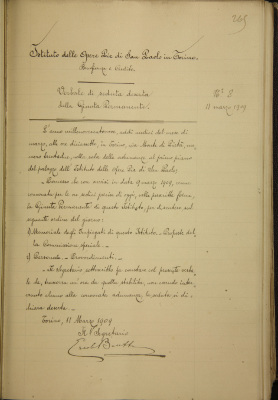 265
Istituto delle Opere Pie di San Paolo in Torino.
Beneficenza e Credito.
Verbale di seduta deserta
della Giunta Permanente.
N.° 8
11 marzo 1909.
L'anno millenovecentonove, undici del mese di
marzo, alle ore diciassette, in Torino, via Monte di Pietà, nu-
mero trentadue, nella sala delle adunanze al primo piano
del palazzo dell'Istituto delle Opere Pie di San Paolo;
in data 9 marzo 1909,
per le ore sedici precise di oggi, nella presente sala,
la Giunta Permanente di questo Istituto, per discutere sul
seguente ordine del giorno:
1) Memoriale degli Impiegati di questo Istituto. - Proposte del-
la Commissione speciale. -
2) Personale. - Provvedimenti. -
Il Segretario sottoscritto fa constare col presente verba-
le che, trascorsa un'ora da quella stabilita, non essendo inter-
venuto alcuno alla convocata adunanza, la seduta si di-
chiara deserta. -
Torino, 11 Marzo 1909
Il Segretario